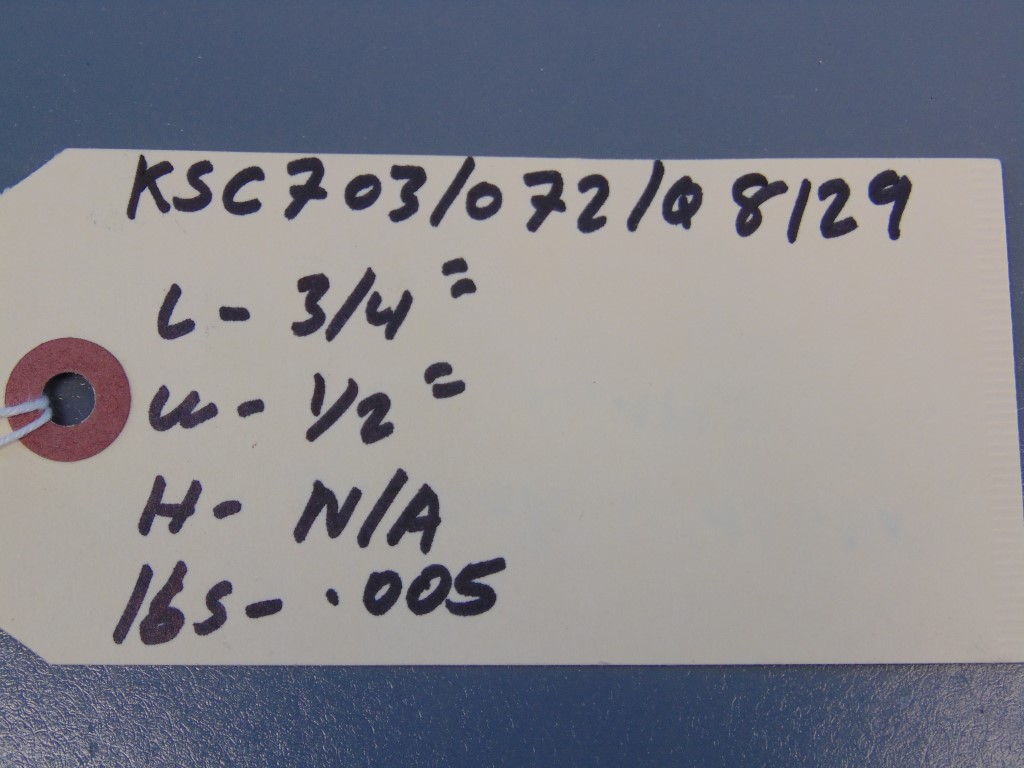 KSC703/072/Q8129
L- 3/4"
W- 1/2"
H- N/A
lbs- .005